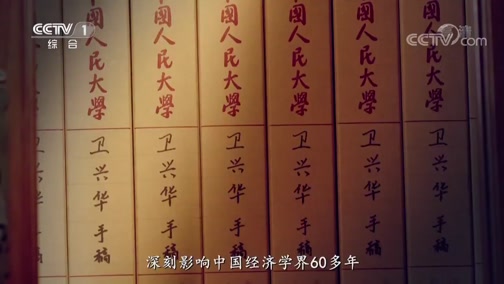 CCTV 1
综合
CCTV.com
中國人民大學
卫兴华 手稿
中國人民大學
卫兴华 手稿
中國人民大學
卫兴华 手稿
中國人民大學
卫兴华 手稿
中國人民大學
卫兴华 手稿
中國人民大學
卫兴华 手稿
深刻影响中国经济学界60多年